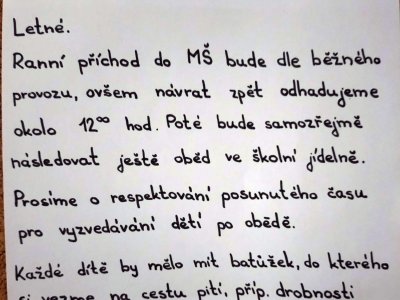 Letné.
Ranní příchod do MŠ bude dle běžného
provozu, ovšem návrat zpět odhadujeme
okolo 12⁰⁰ hod. Poté bude samozřejmě
následovat ještě oběd ve školní jídelně.
Prosíme o respektování posunutého času
pro vyzvedávání dětí po obědě.
Každé dítě by mělo mít batůžek, do kterého
si vezme na cestu pití, příp. drobnosti